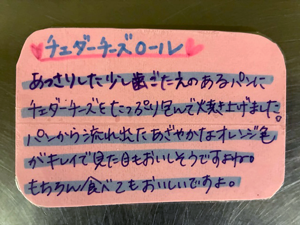 チェダーチーズロール
あっさりした少し歯ごたえのあるパンに
チェダーチーズをたっぷり包んで焼き上げました。
パンから流れ出たあざやかなオレンジ色
がキレイで見た目もおいしそうですよね。
もちろん食べてもおいしいですよ。